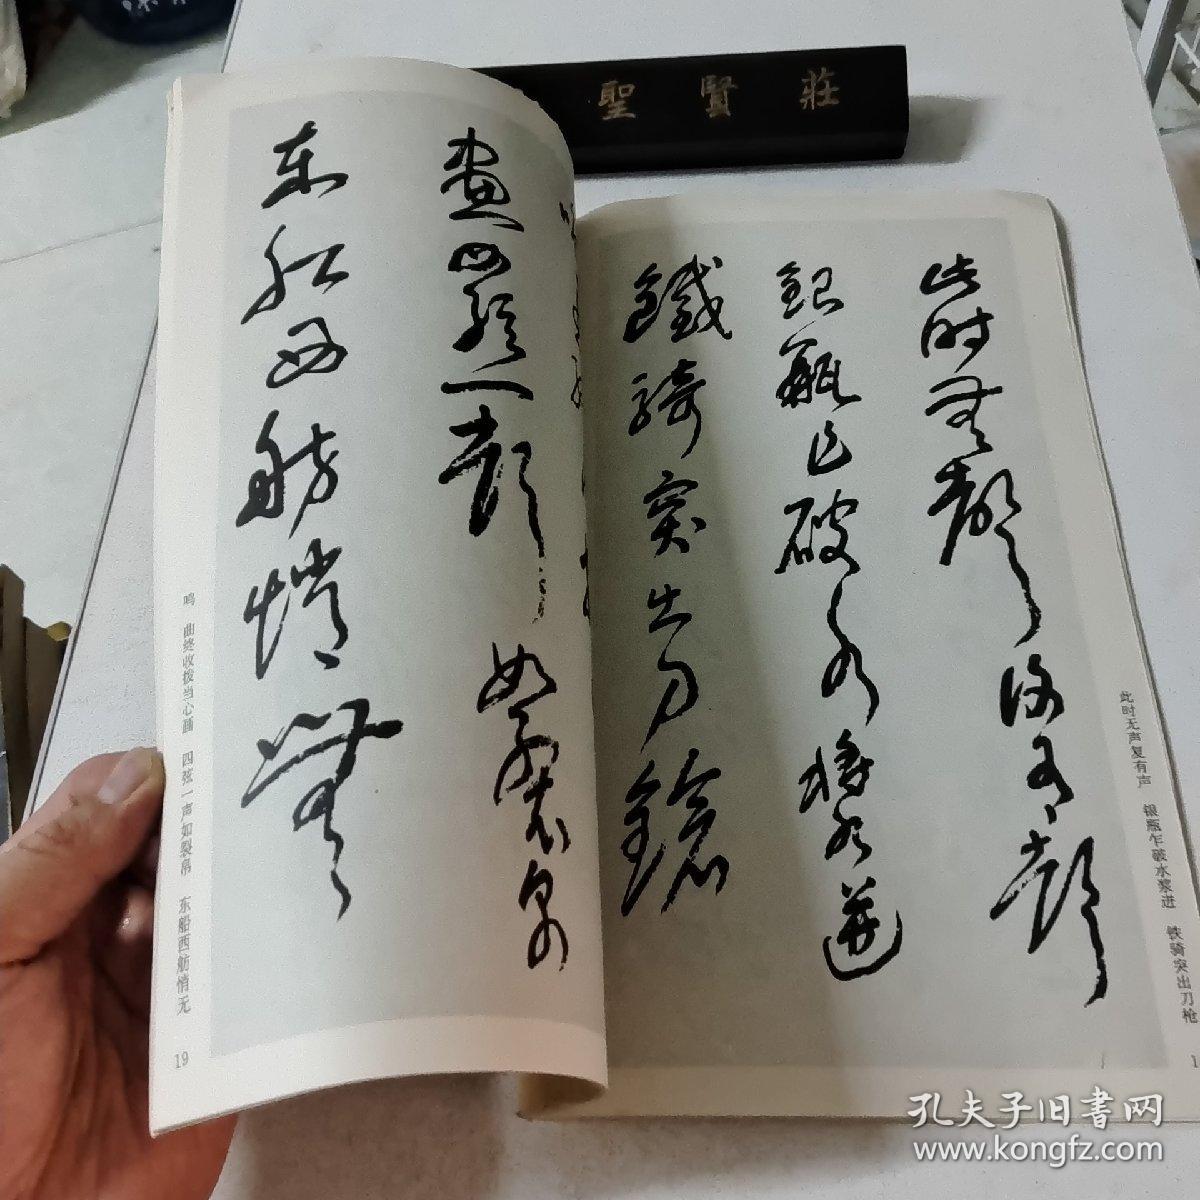 聖賢莊
此时無聲復有聲
銀瓶乍破水漿迸
鐵騎突出刀鎗
此时无声复有声 银瓶乍破水浆迸 铁骑突出刀枪
畫四弦一聲如裂帛
东船西舫悄無
鸣 曲终收拨当心画 四弦一声如裂帛 东船西舫悄无
19
孔夫子旧書网
www.kongfz.com